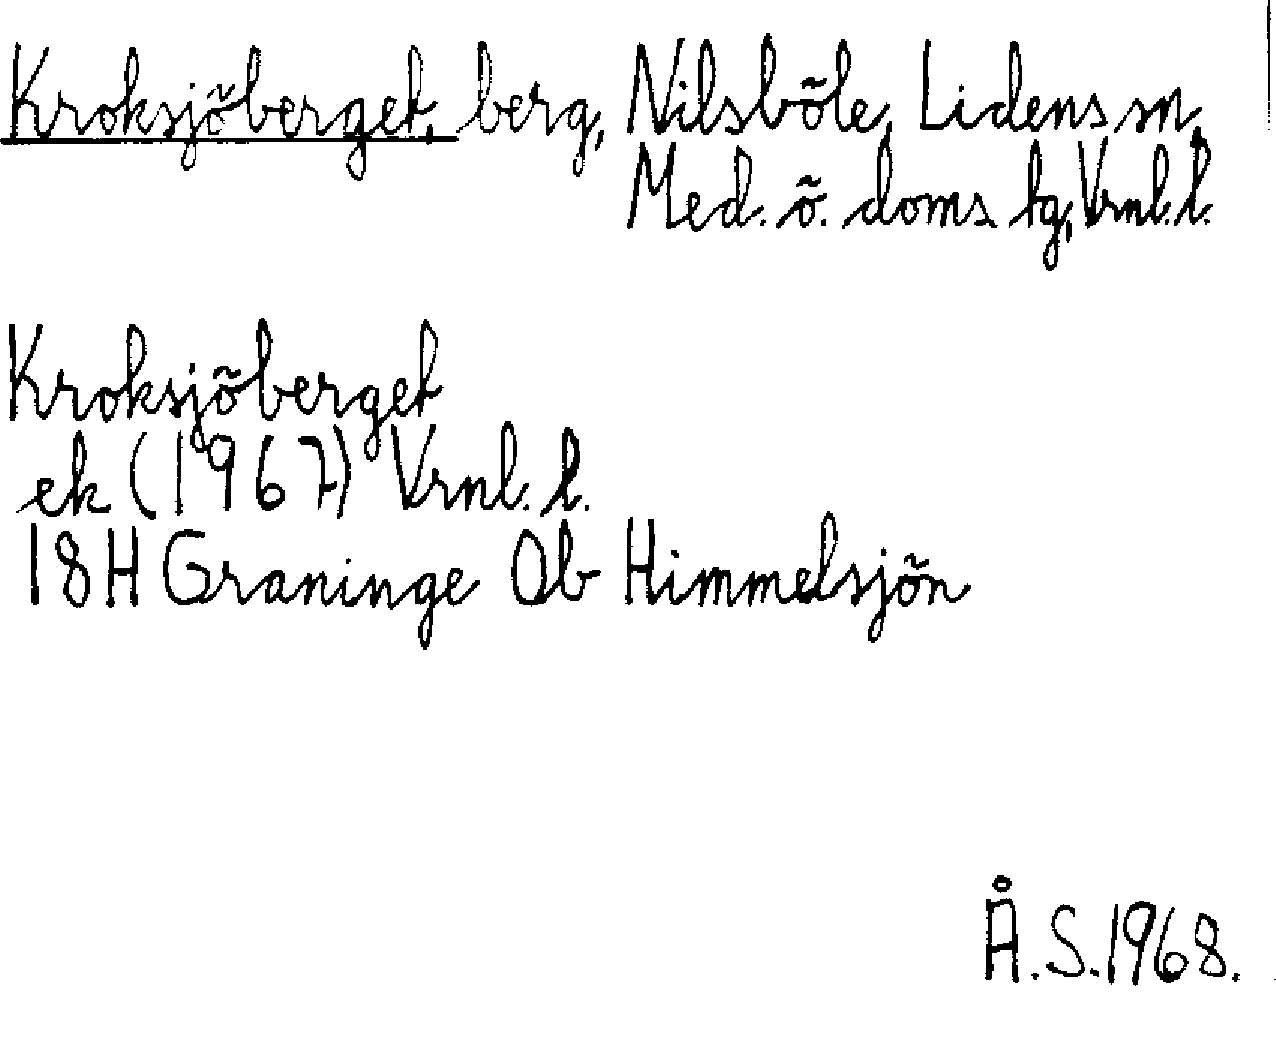 Kroksjöberget, berg, Nilsböle, Lidens sn,
Med. ö. doms tg, Vrnl. l.
Kroksjöberget
ek (1967) Vrnl. l.
18H Graninge Ob Himmelsjön
Å.S.1968.